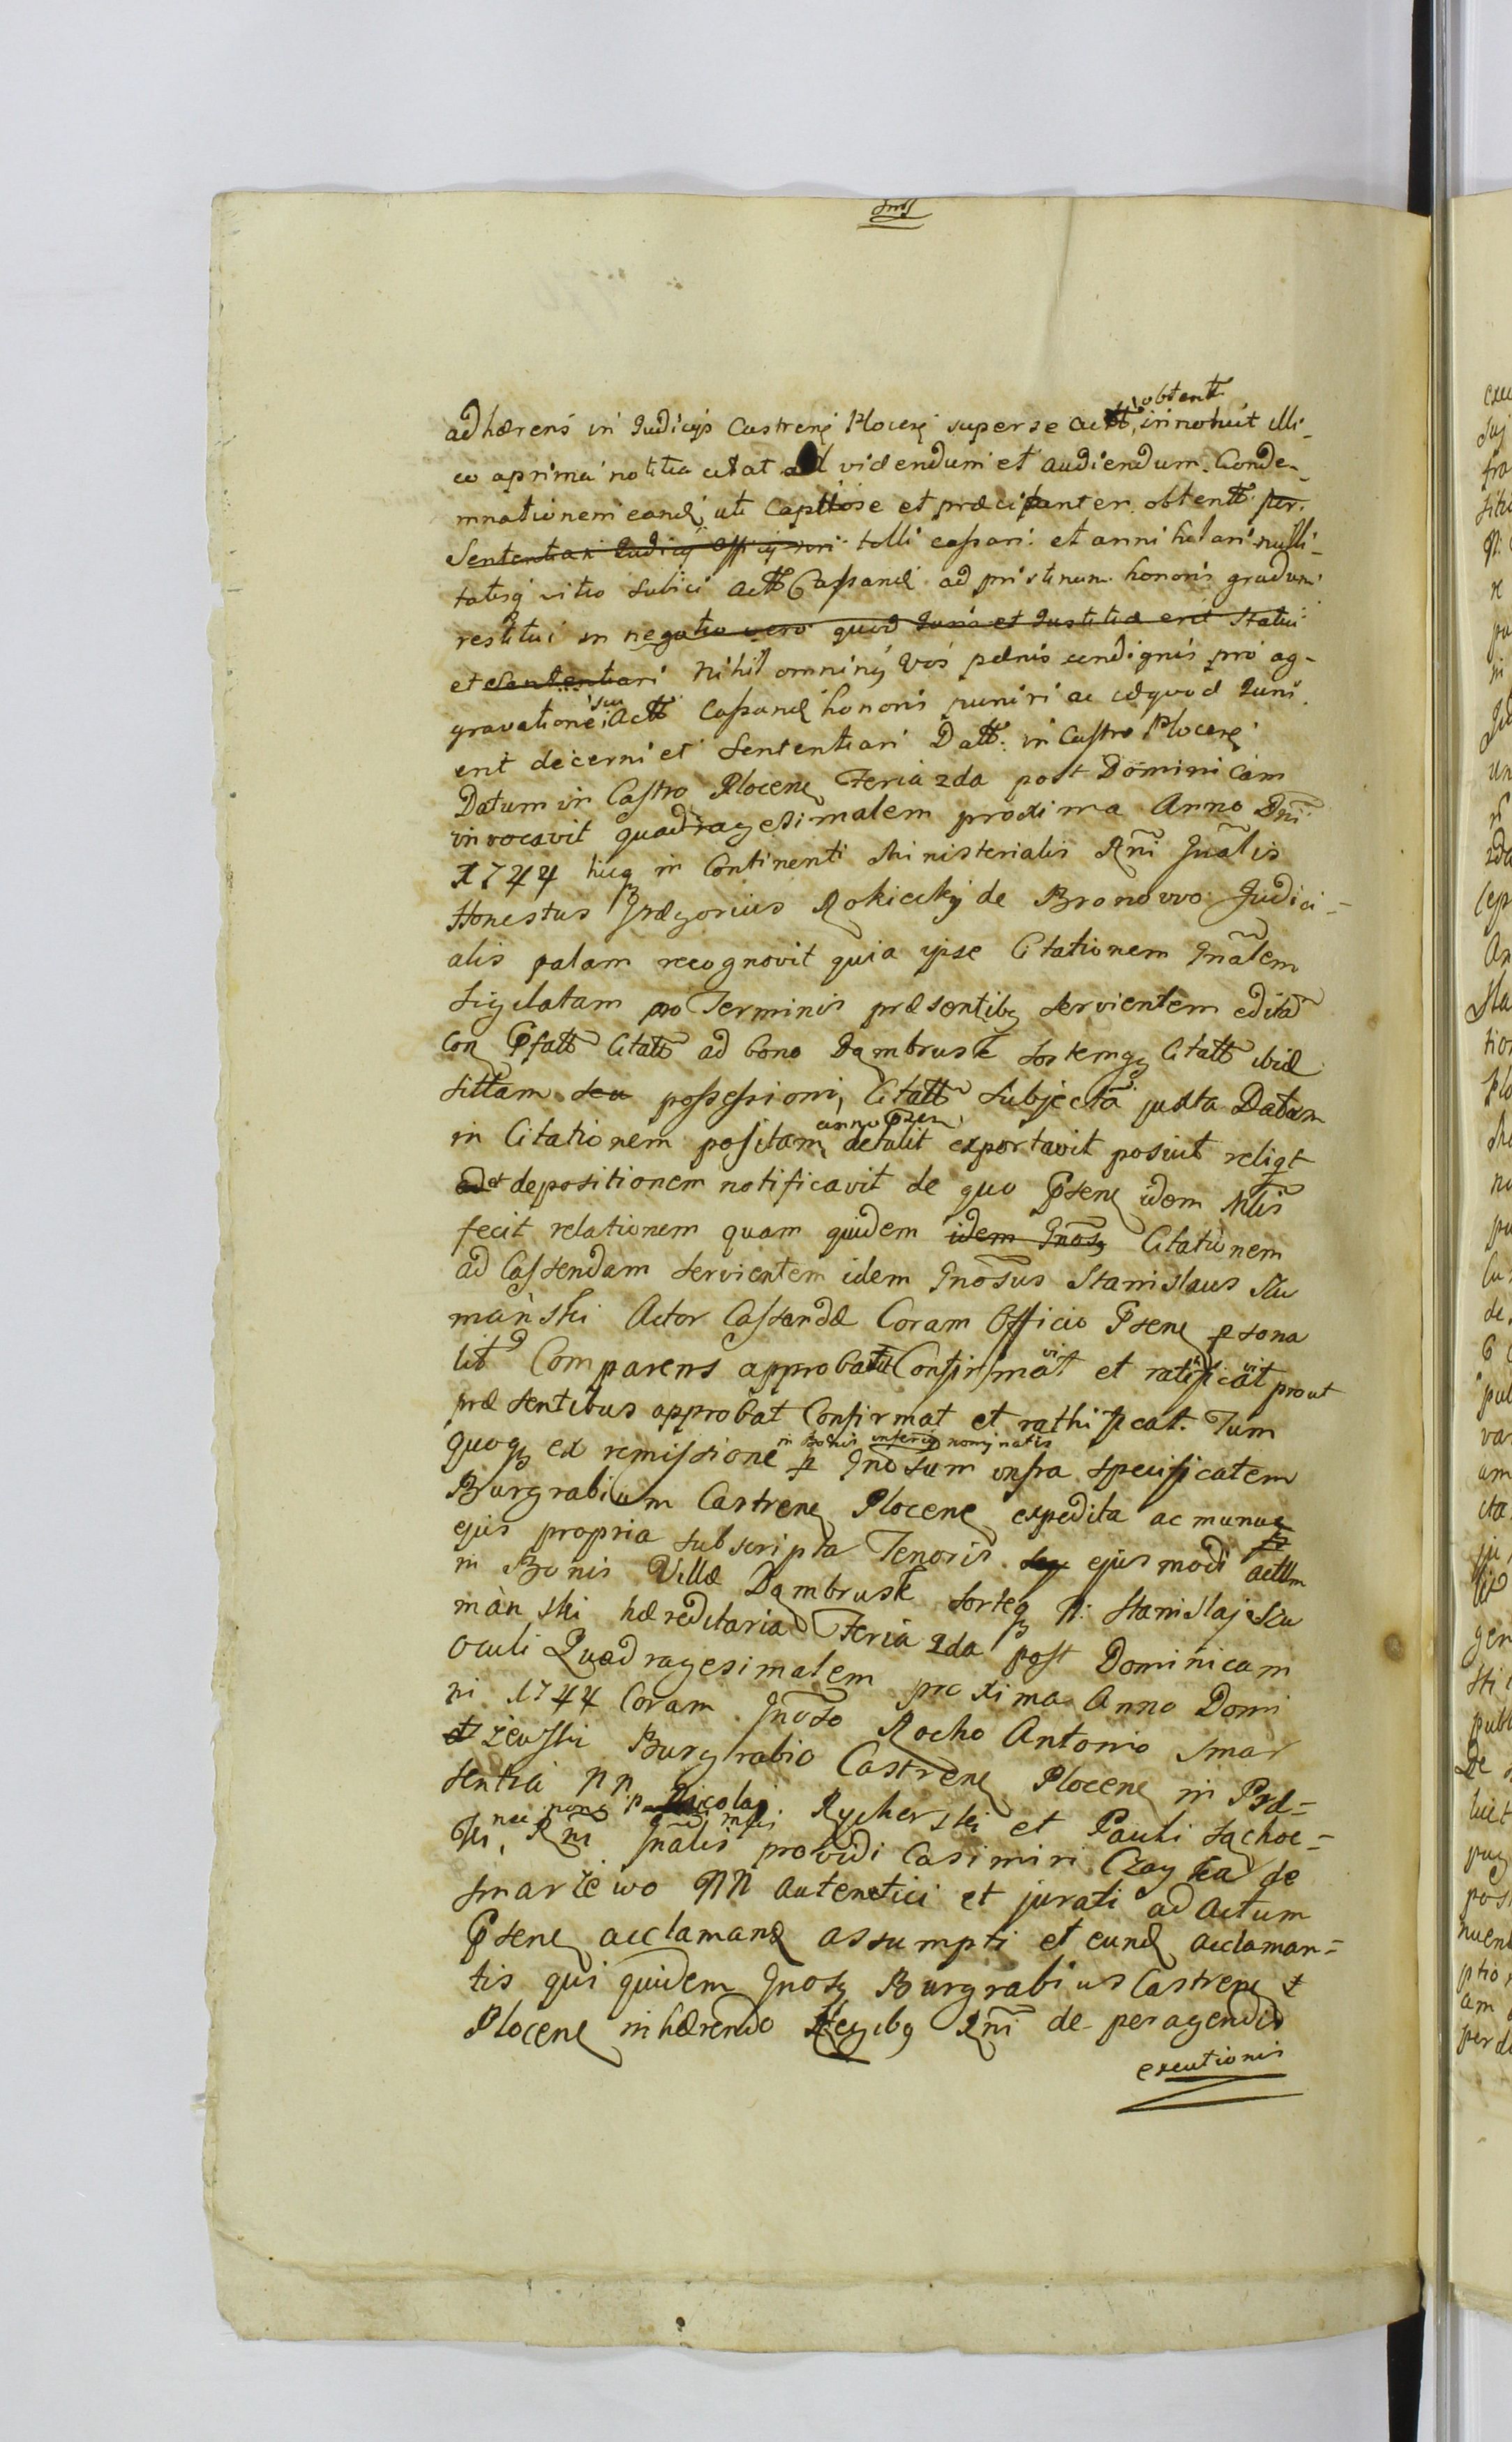 adhærens in Judicijs Castrens Plocens super se actt, obtentt innotuit illi-
co aprima notitia citat ad videndum et audiendum. Conde-
mnationem eand, uti Captiose et præcipitanter obtentt per
Sententiam Judicij Officij sui tolli cassari et annihilari nulli-
tatisq vitio subici actt Cassand ad pristinum honoris gradum
restitui in negativa vero quod Juris et Justitiæ erit Statui
et Sententiari nihil ominus vos pænis condignis pro ag-
gravatione sui Actt Cassand honoris puniri ac id quod Juris
erit decerni et Sententiari Datt: in Castro Plocens
Datum in Castro Plocens Feria 2da post Dominicam
invocavit quadragesimalem proxima Anno Dni
1744 hicq in Continenti Ministerialis Rni Gnalis
Honestus Gregorius Rokicky de Bronowo Judici=
alis palam recognovit quia ipse Citationem Gnalem
Sigilatam pro Terminis præsentibq servientem edita
Con Pfatt Citatt ad bona Dąmbrusk sortemqz Citatt ibid
sittam seu possessioni, Citatt subjecta juxta Datam
in Citationem positam, anno Psen detulit exportavit posuit reliqt
ed et depositionem notificavit de quo Psens idem Mlis
fecit relationem quam quidem idem Gnosq Citationem
ad Cassandam servientem idem Gnosus Stanislaus Szu
mański Actor Cassandæ Coram Officio Psens psona
lit Comparens approbavit Confirmavit et rathificavit prout
præsentibus approbat Confirmat et rathificat. Tum
quoqz ex remissione in bonis inferiq nominatis p Gnosum infra specificatem
Burgrabium Castrens Plocens expedita ac manuq
ejus propria subscripta Tenoris seq ejus modi actum
in Bonis Villæ Dąmbrusk sorteqz N: Stanislaj Szu
mański hæreditaria Feria 2da post Dominicam
oculi Quadragesimalem proxima Anno Domi
ni 1744 Coram Gnoso Rocho Antonio Smar
dzewski Burgrabio Castrens Plocens in Præ=
sentia NN Nicolaj Rycherski et Pauli Sąchoc=
ki, nec non Rni Gnalis providi Casimiri Czayka de
Smarżewo NN autentici et jurati ad actum
Psens acclamand assumpti et eund acclaman=
tis qui quidem Gnosq Burgrabius Castrens
Plocens inhærendo Legibq Rni de peragendis
executionis